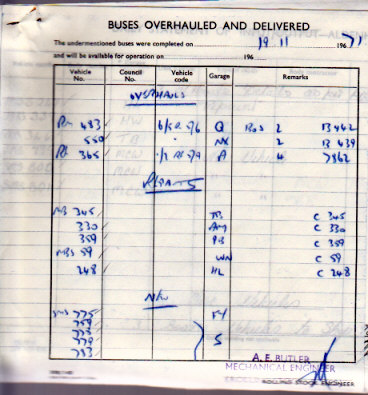 BUSES OVERHAULED AND DELIVERED
The undermentioned buses were completed on 19 11 1971
and will be available for operation on 196
Vehicle No. Council No. Vehicle code Garage Remarks
OVERHAULS
RM 483 Q Box 2 B 442
550 NX 2 B 439
365 A 4 7862
REPAINTS
MB 345 C 345
330 AM C 330
359 PB C 359
MBS 59 WN C 59
248 HL C 248
NEW
SMS 775 FY
759
778
779 S
783
A. E. BUTLER
MECHANICAL ENGINEER
ROLLING STOCK ENGINEER